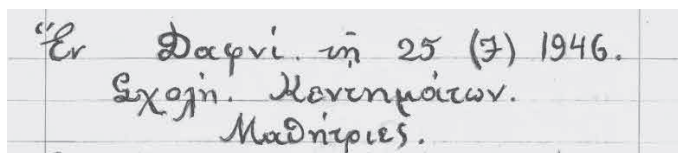 Ἐν Δαφνί. τῇ 25 (7) 1946.
Σχολή. Κεντημάτων.
Μαθήτριες.